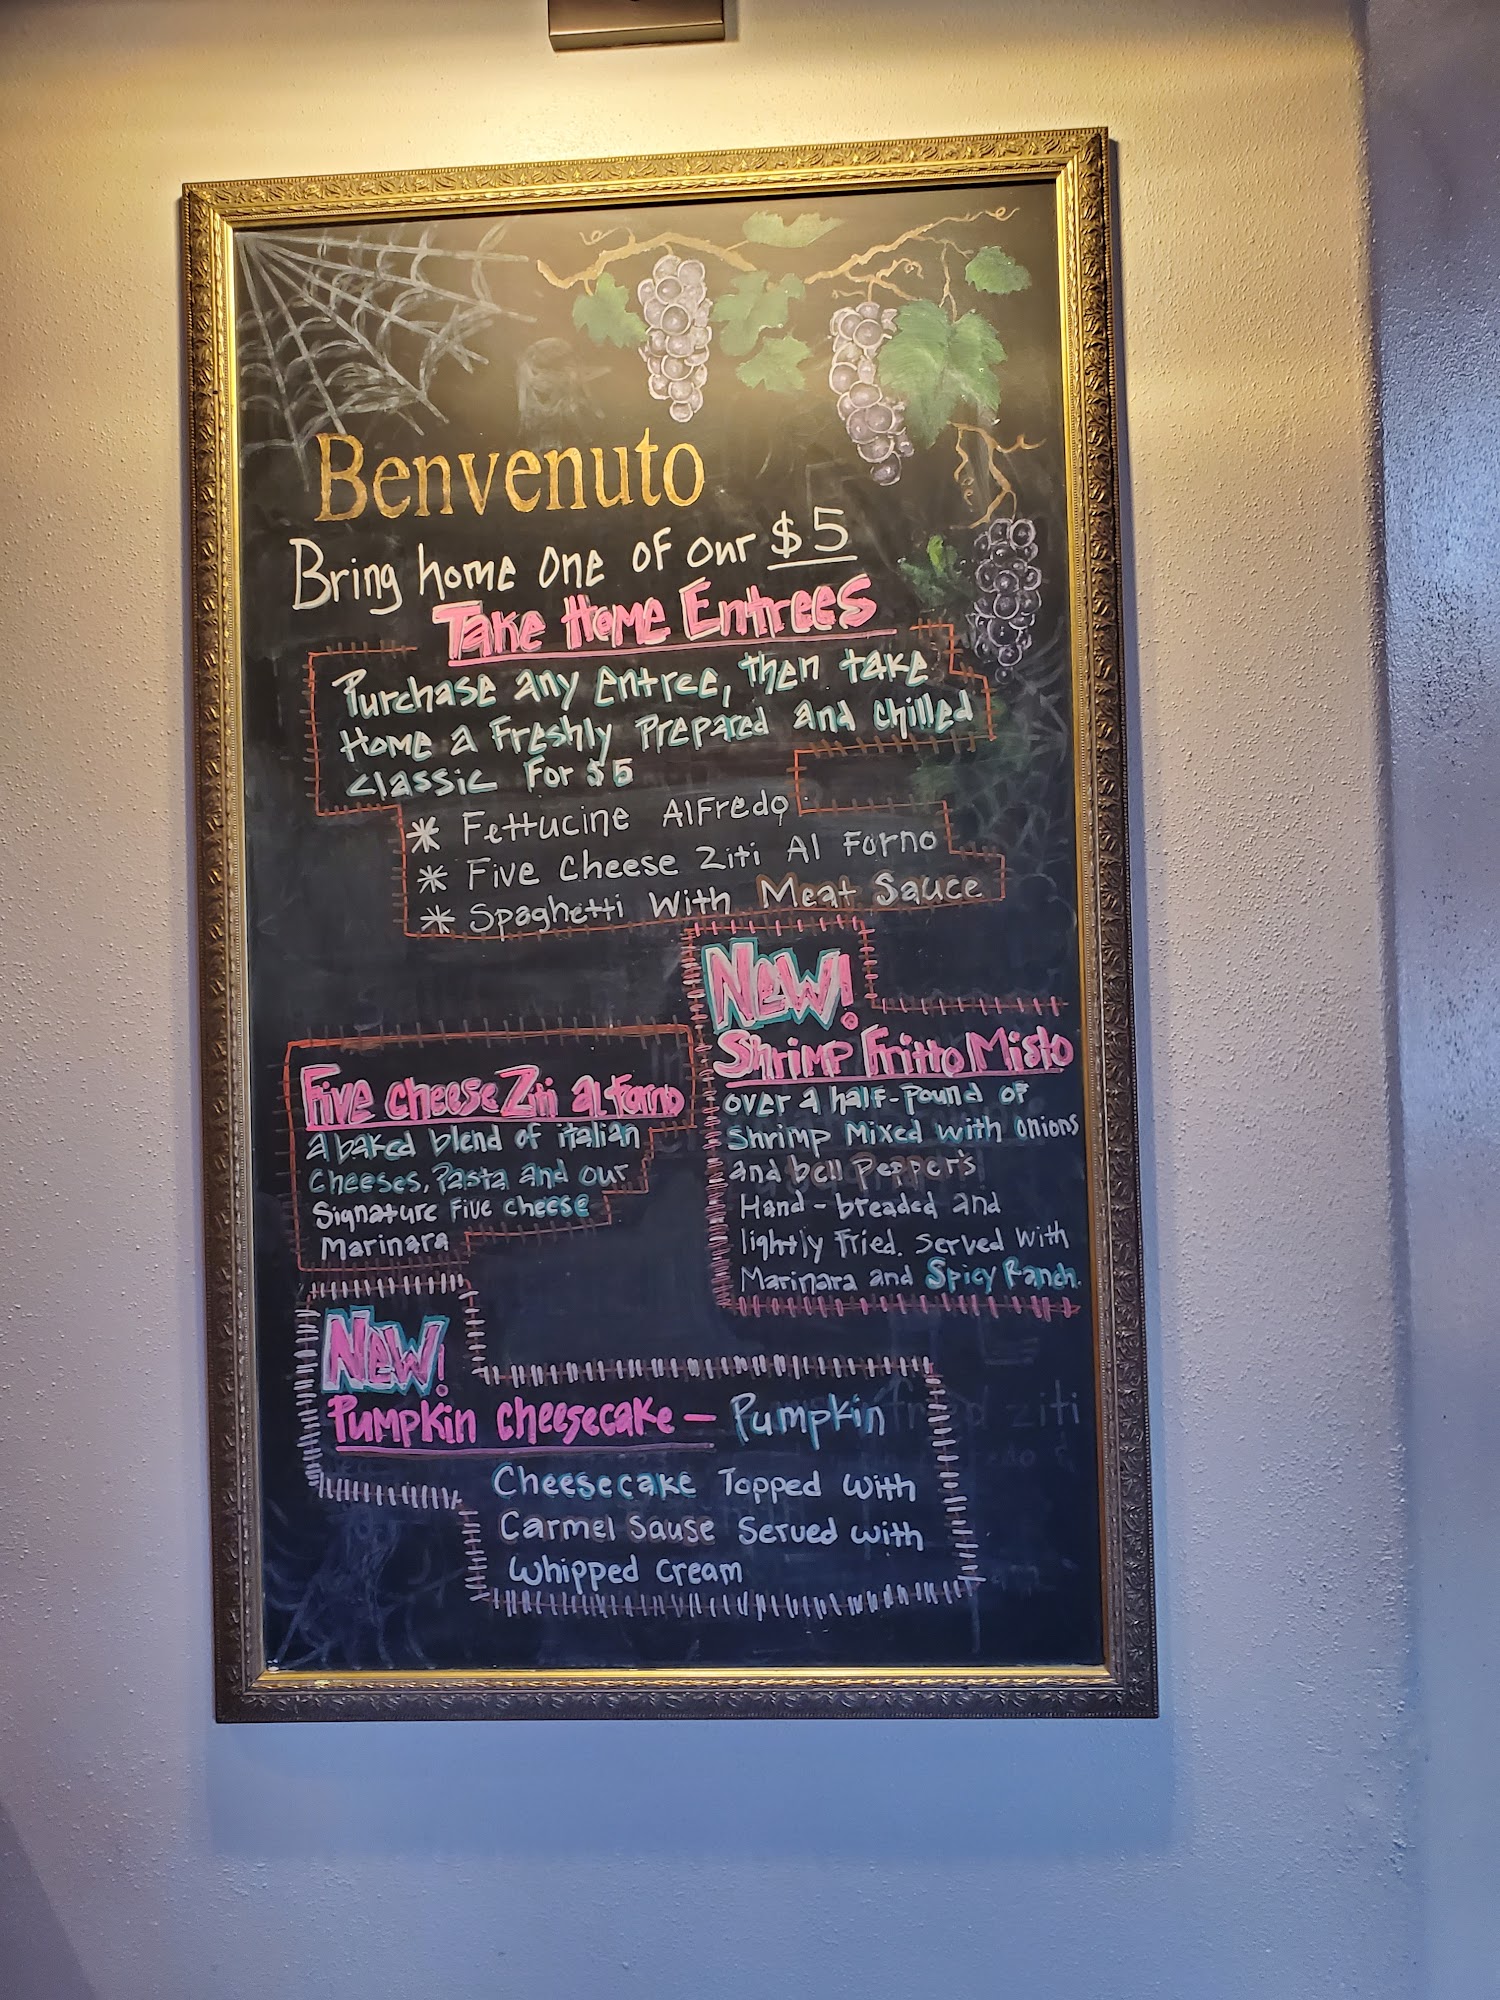 Benvenuto
Bring home one of our $5
Take Home Entrees
Purchase any entree, then take
Home a Freshly Prepared and chilled
classic For $5
* Fettucine AlFredo
* Five Cheese Ziti Al Forno
* Spaghetti With Meat Sauce
New!
Shrimp Fritto Misto
over a half-pound of
Shrimp Mixed with onions
and bell Pepper's
Hand-breaded and
lightly Fried. Served With
Marinara and Spicy Ranch.
Five cheese Ziti al Forno
a baked blend of italian
Cheeses, Pasta and our
Signature Five cheese
Marinara
New!
Pumpkin Cheesecake - Pumpkin
Cheesecake Topped With
Carmel Sause Served with
Whipped Cream